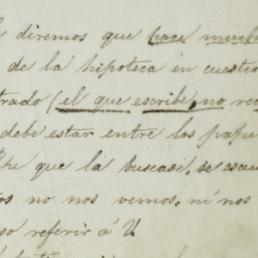 diremos que hace much
de la hipoteca en cuestio
trado (el que escribe, no rec
debe estar entre los pape
que la buscase, se escu
os no nos vemos, ni nos
so referir á U